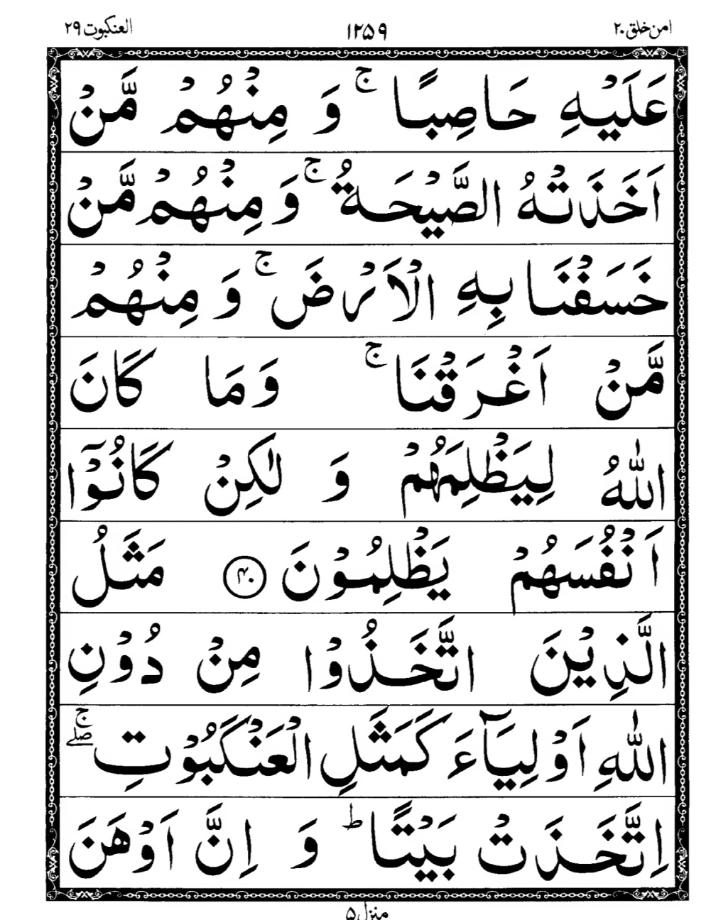 امن خلق ٢٠ ١٢۵٩ العنکبوت ٢٩
عَلَيْهِ حَاصِبًا ۚ وَ مِنْهُمْ مَّنْ
اَخَذَتْهُ الصَّيْحَةُ ۚ وَ مِنْهُمْ مَّنْ
خَسَفْنَا بِهِ الْاَرْضَ ۚ وَ مِنْهُمْ
مَّنْ اَغْرَقْنَا ۚ وَمَا كَانَ
اللّٰهُ لِيَظْلِمَهُمْ وَ لٰكِنْ كَانُوْۤا
اَنْفُسَهُمْ يَظْلِمُوْنَ ﴿۴۰﴾ مَثَلُ
الَّذِيْنَ اتَّخَذُوْا مِنْ دُوْنِ
اللّٰهِ اَوْلِيَآءَ كَمَثَلِ الْعَنْكَبُوْتِ ۖۚ
اِتَّخَذَتْ بَيْتًا ؕ وَ اِنَّ اَوْهَنَ
منزل ۵